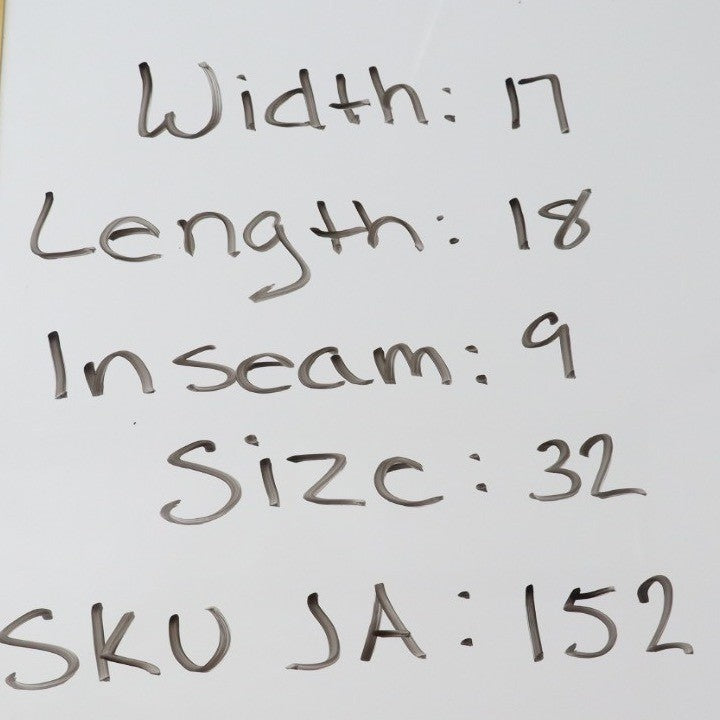 Width: 17
Length: 18
Inseam: 9
Size: 32
SKU JA: 152